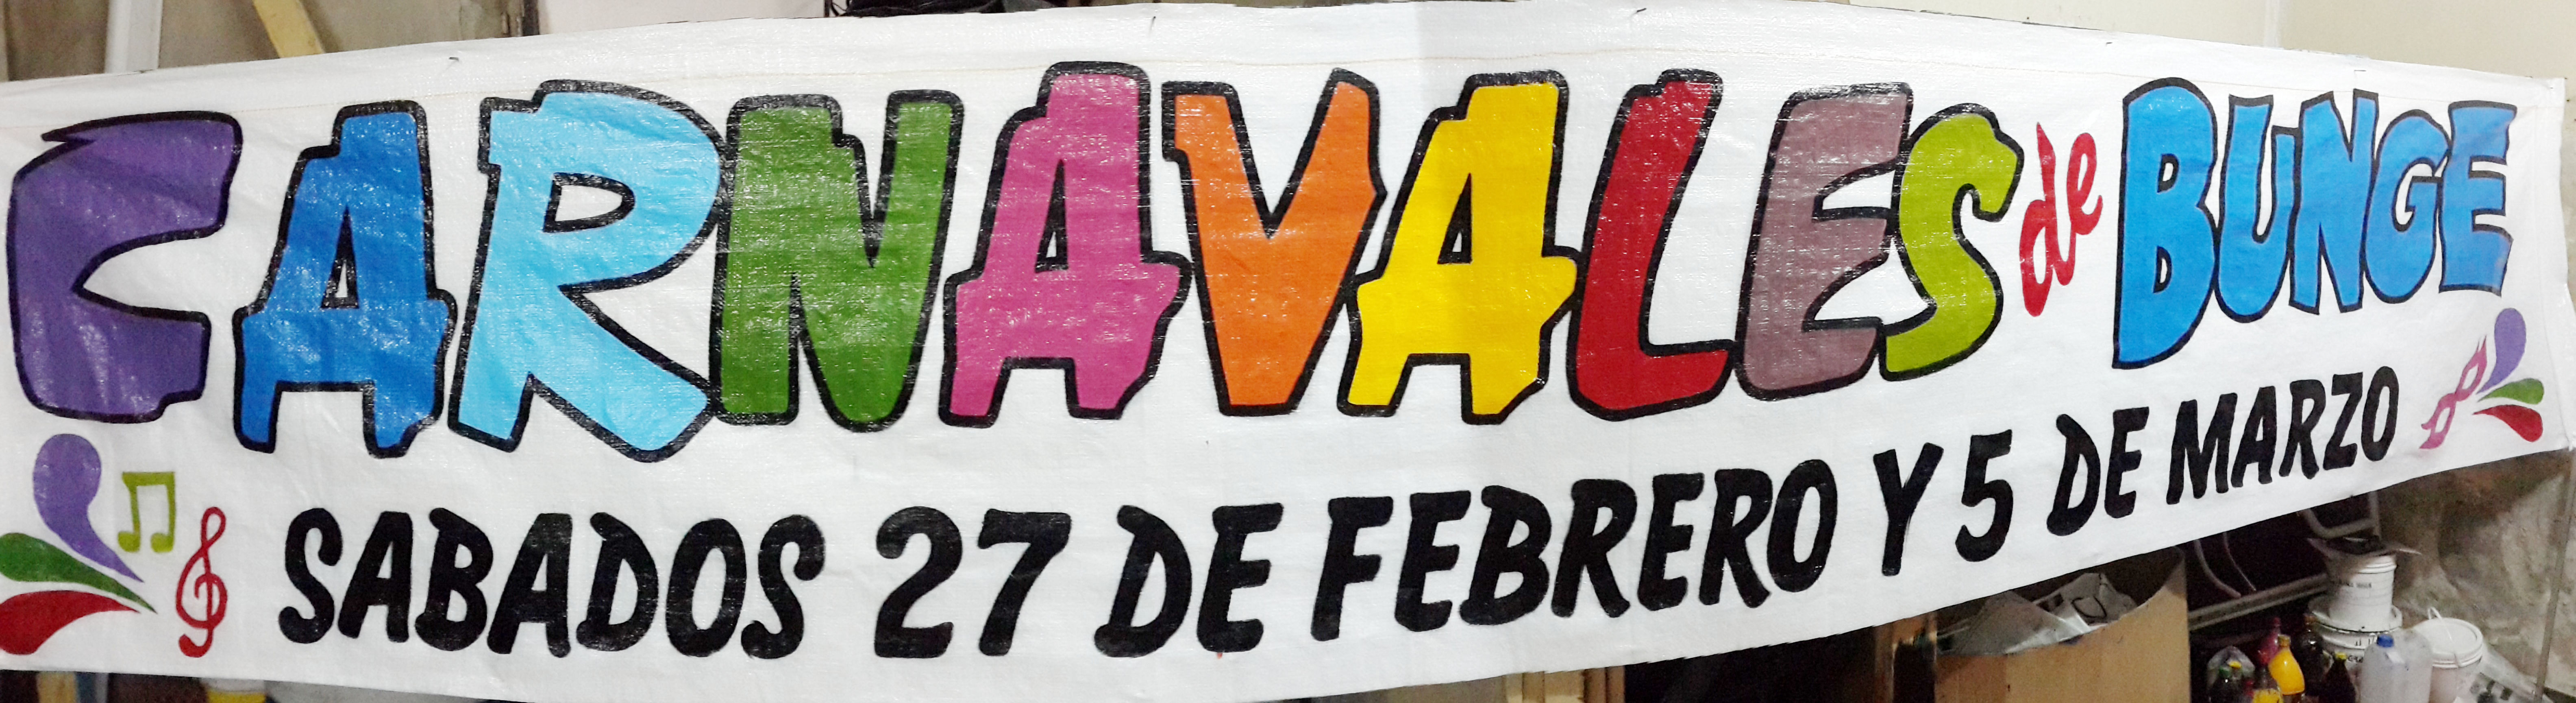 CARNAVALES de BUNGE
SABADOS 27 DE FEBRERO Y 5 DE MARZO